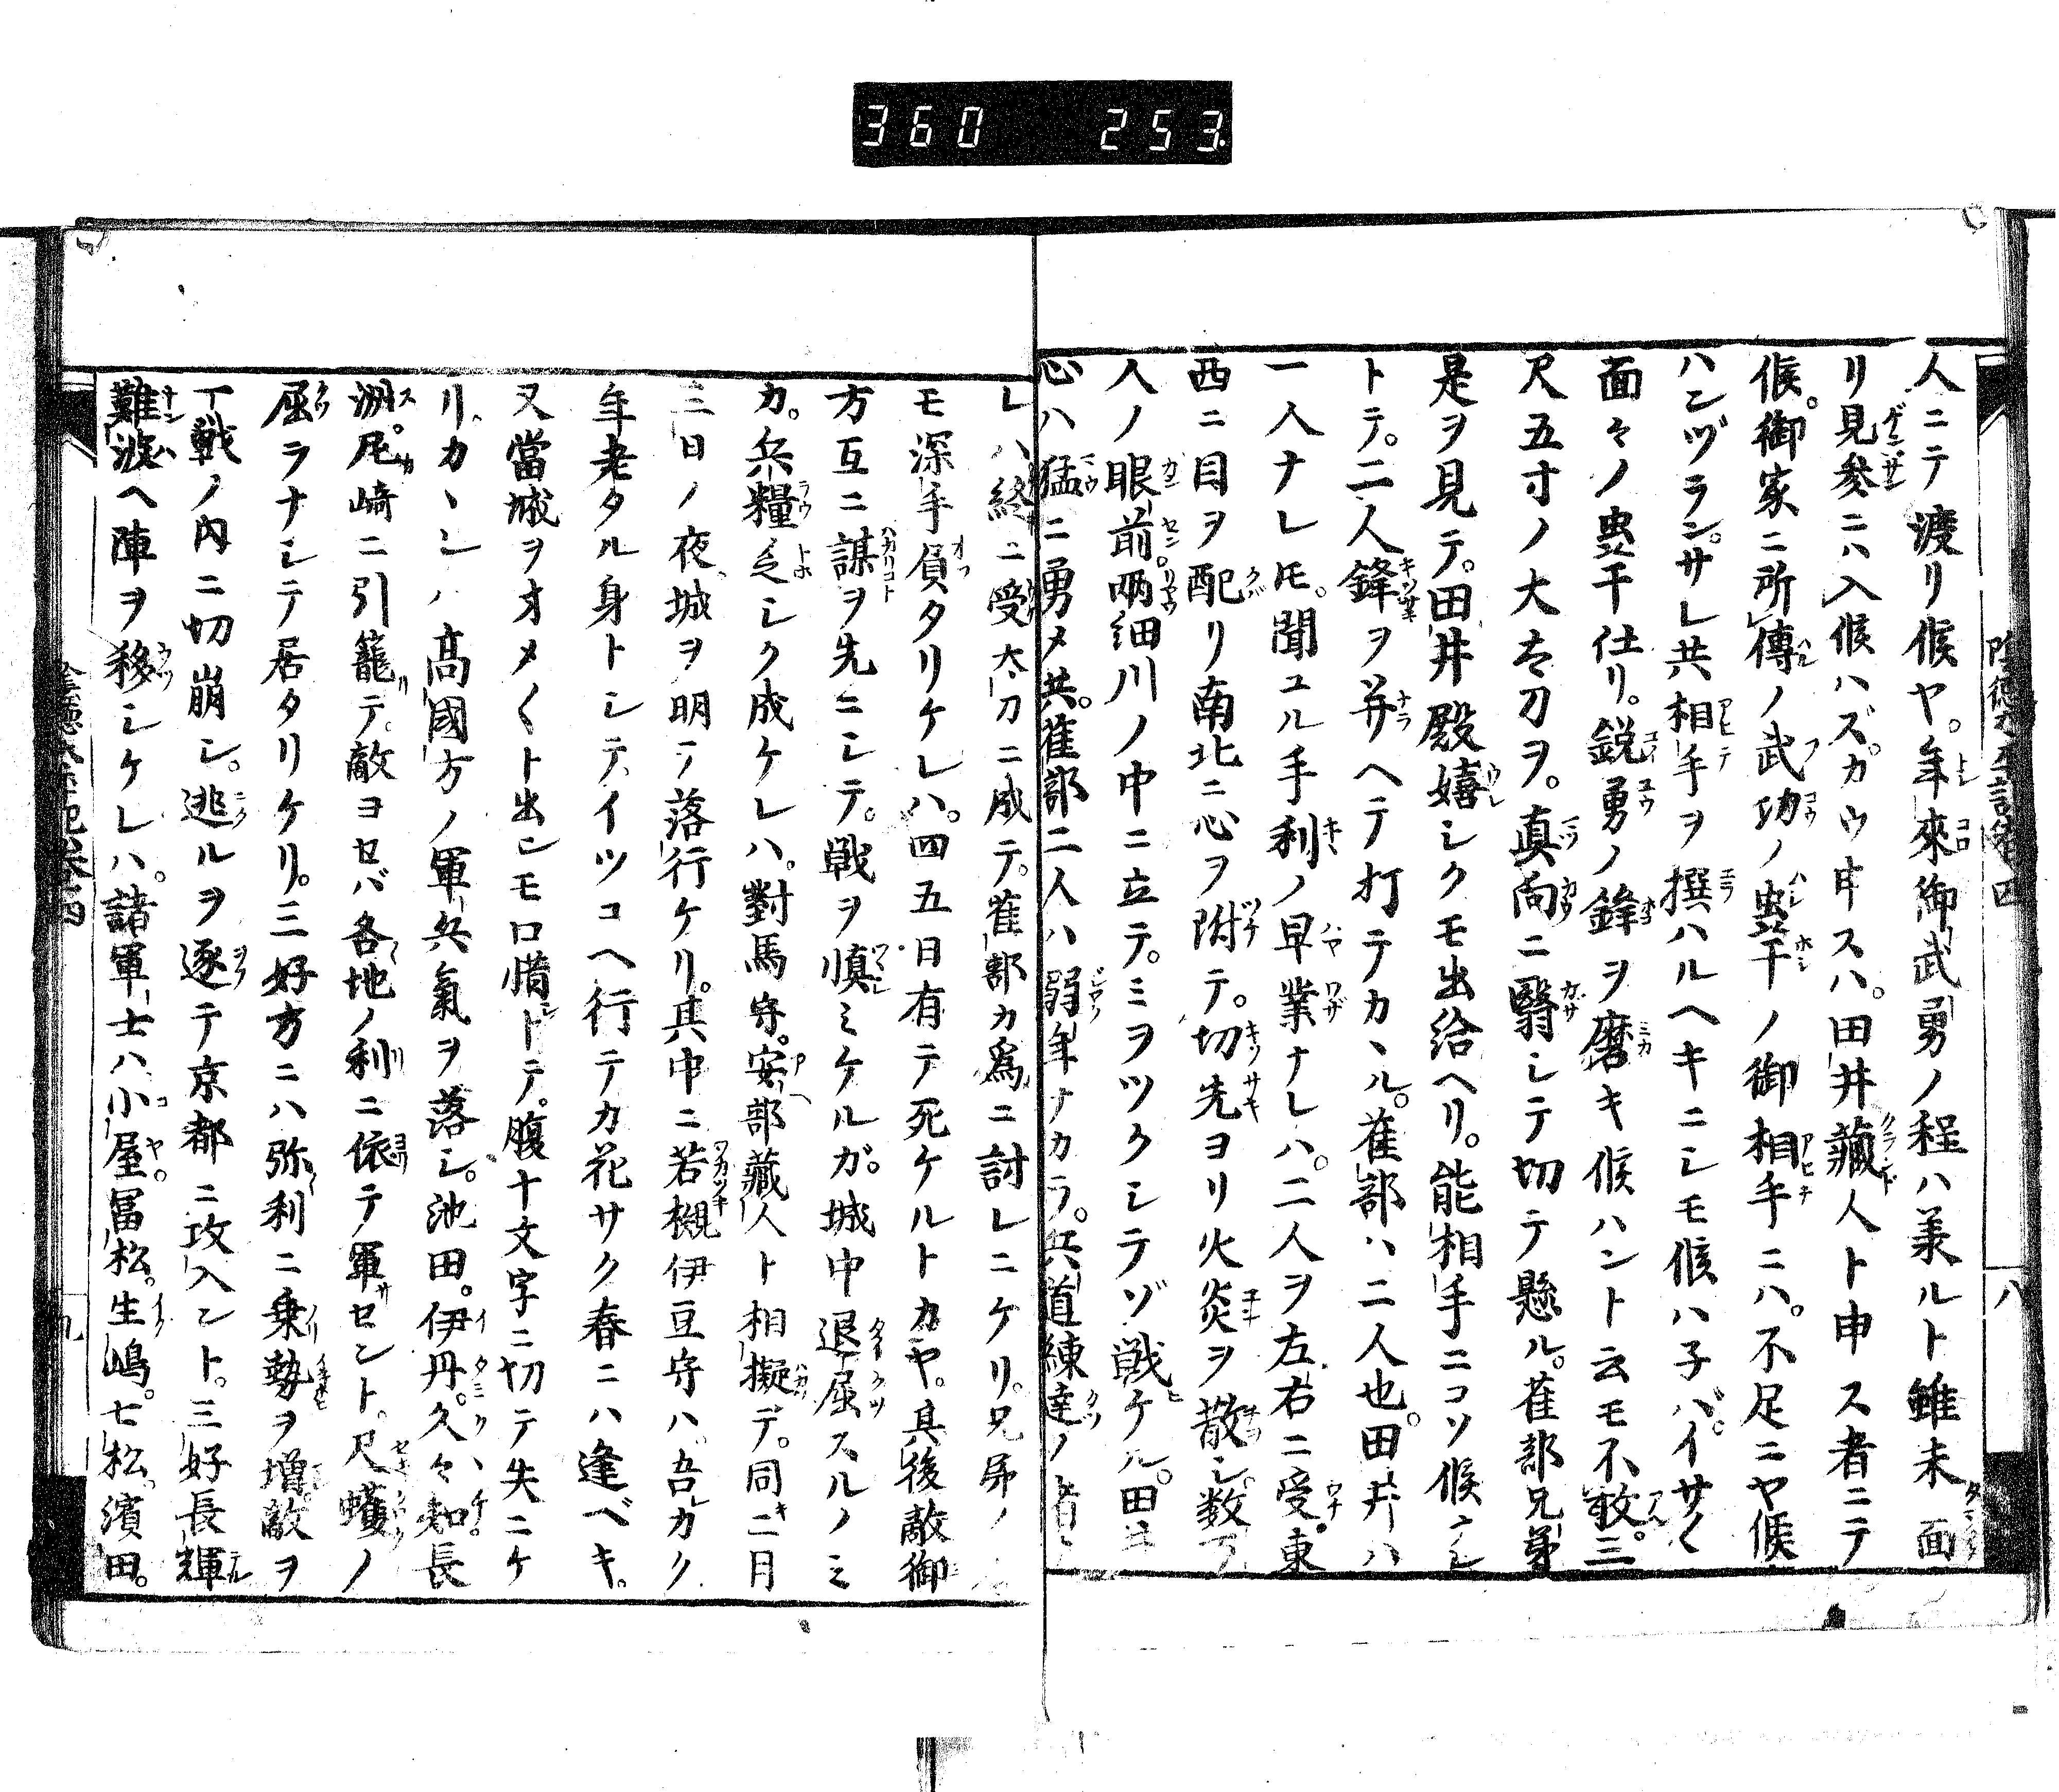 360 253
陰徳太平記巻四
八
人ニテ渡リ候ヤ。年來御武勇ノ程ハ羕ルト雖未面
リ見參ニハ入候ハズ。カウ申スハ。田井藏人ト申ス者ニテ
候。御家ニ所傳ノ武功ノ蛬干ノ御相手ニハ。不足ニヤ候
ハンヅラン。サレ共相手ヲ撰ハルヘキニシモ候ハ子バ。イサ〱
面々ノ蛬干仕リ。鋭勇ノ鋒ヲ磨キ候ハント云モ不敢。三
尺五寸ノ大太刀ヲ。真向ニ翳シテ切テ懸ル。萑部兄弟
是ヲ見テ。田井殿嬉シクモ出給ヘリ。能相手ニコソ候ヘシ
トテ。二人鋒ヲ并ヘテ打テカヽル。萑部ハ二人也。田井ハ
一人ナレ𪜈。聞ユル手利ノ早業ナレハ。二人ヲ左右ニ受。東
西ニ目ヲ配リ南北ニ心ヲ附テ。切先ヨリ火炎ヲ散シ。数万
人ノ眼前。兩細川ノ中ニ立テ。ミヲツクシテゾ戦ケル。田井
心ハ猛ニ勇メ共。萑部二人ハ弱年ナカラ。兵道練達ノ者ナ
レハ終ニ受太刀ニ成テ。萑部カ爲ニ討レニケリ。兄弟ノ
モ深手負タリケレハ。四五日有テ死ケルトカヤ。其後敵御
方互ニ謀ヲ先ニシテ。戦ヲ慎ミケルガ。城中退屈スルノミ
カ。兵糧乏シク成ケレハ。對馬守。安部藏人ト相擬テ。同二月
三日ノ夜城ヲ明テ落行ケリ。其中ニ若槻伊豆守ハ。吾カク
年老タル身トシテ。イツコヘ行テカ花サク春ニハ逢ベキ。
又當城ヲオメ〱ト出シモ口惜トテ。腹十文字ニ切テ失ニケ
リ。カヽシハ高國方ノ軍兵氣ヲ落シ。池田。伊丹。久々知。長
洲。尼崎ニ引籠テ。敵ヨセバ各地ノ利ニ依テ軍セント。尺蠖ノ
屈ラナシテ居タリケリ。三好方ニハ弥利ニ乗勢ヲ增。敵ヲ
一戰ノ内ニ切崩シ。逃ルヲ逐テ京都ニ攻入ント。三好長輝
難波ヘ陣ヲ移シケレハ。諸軍士ハ小屋。冨松。生嶋。七松。濱田。
陰徳太平記巻四
九